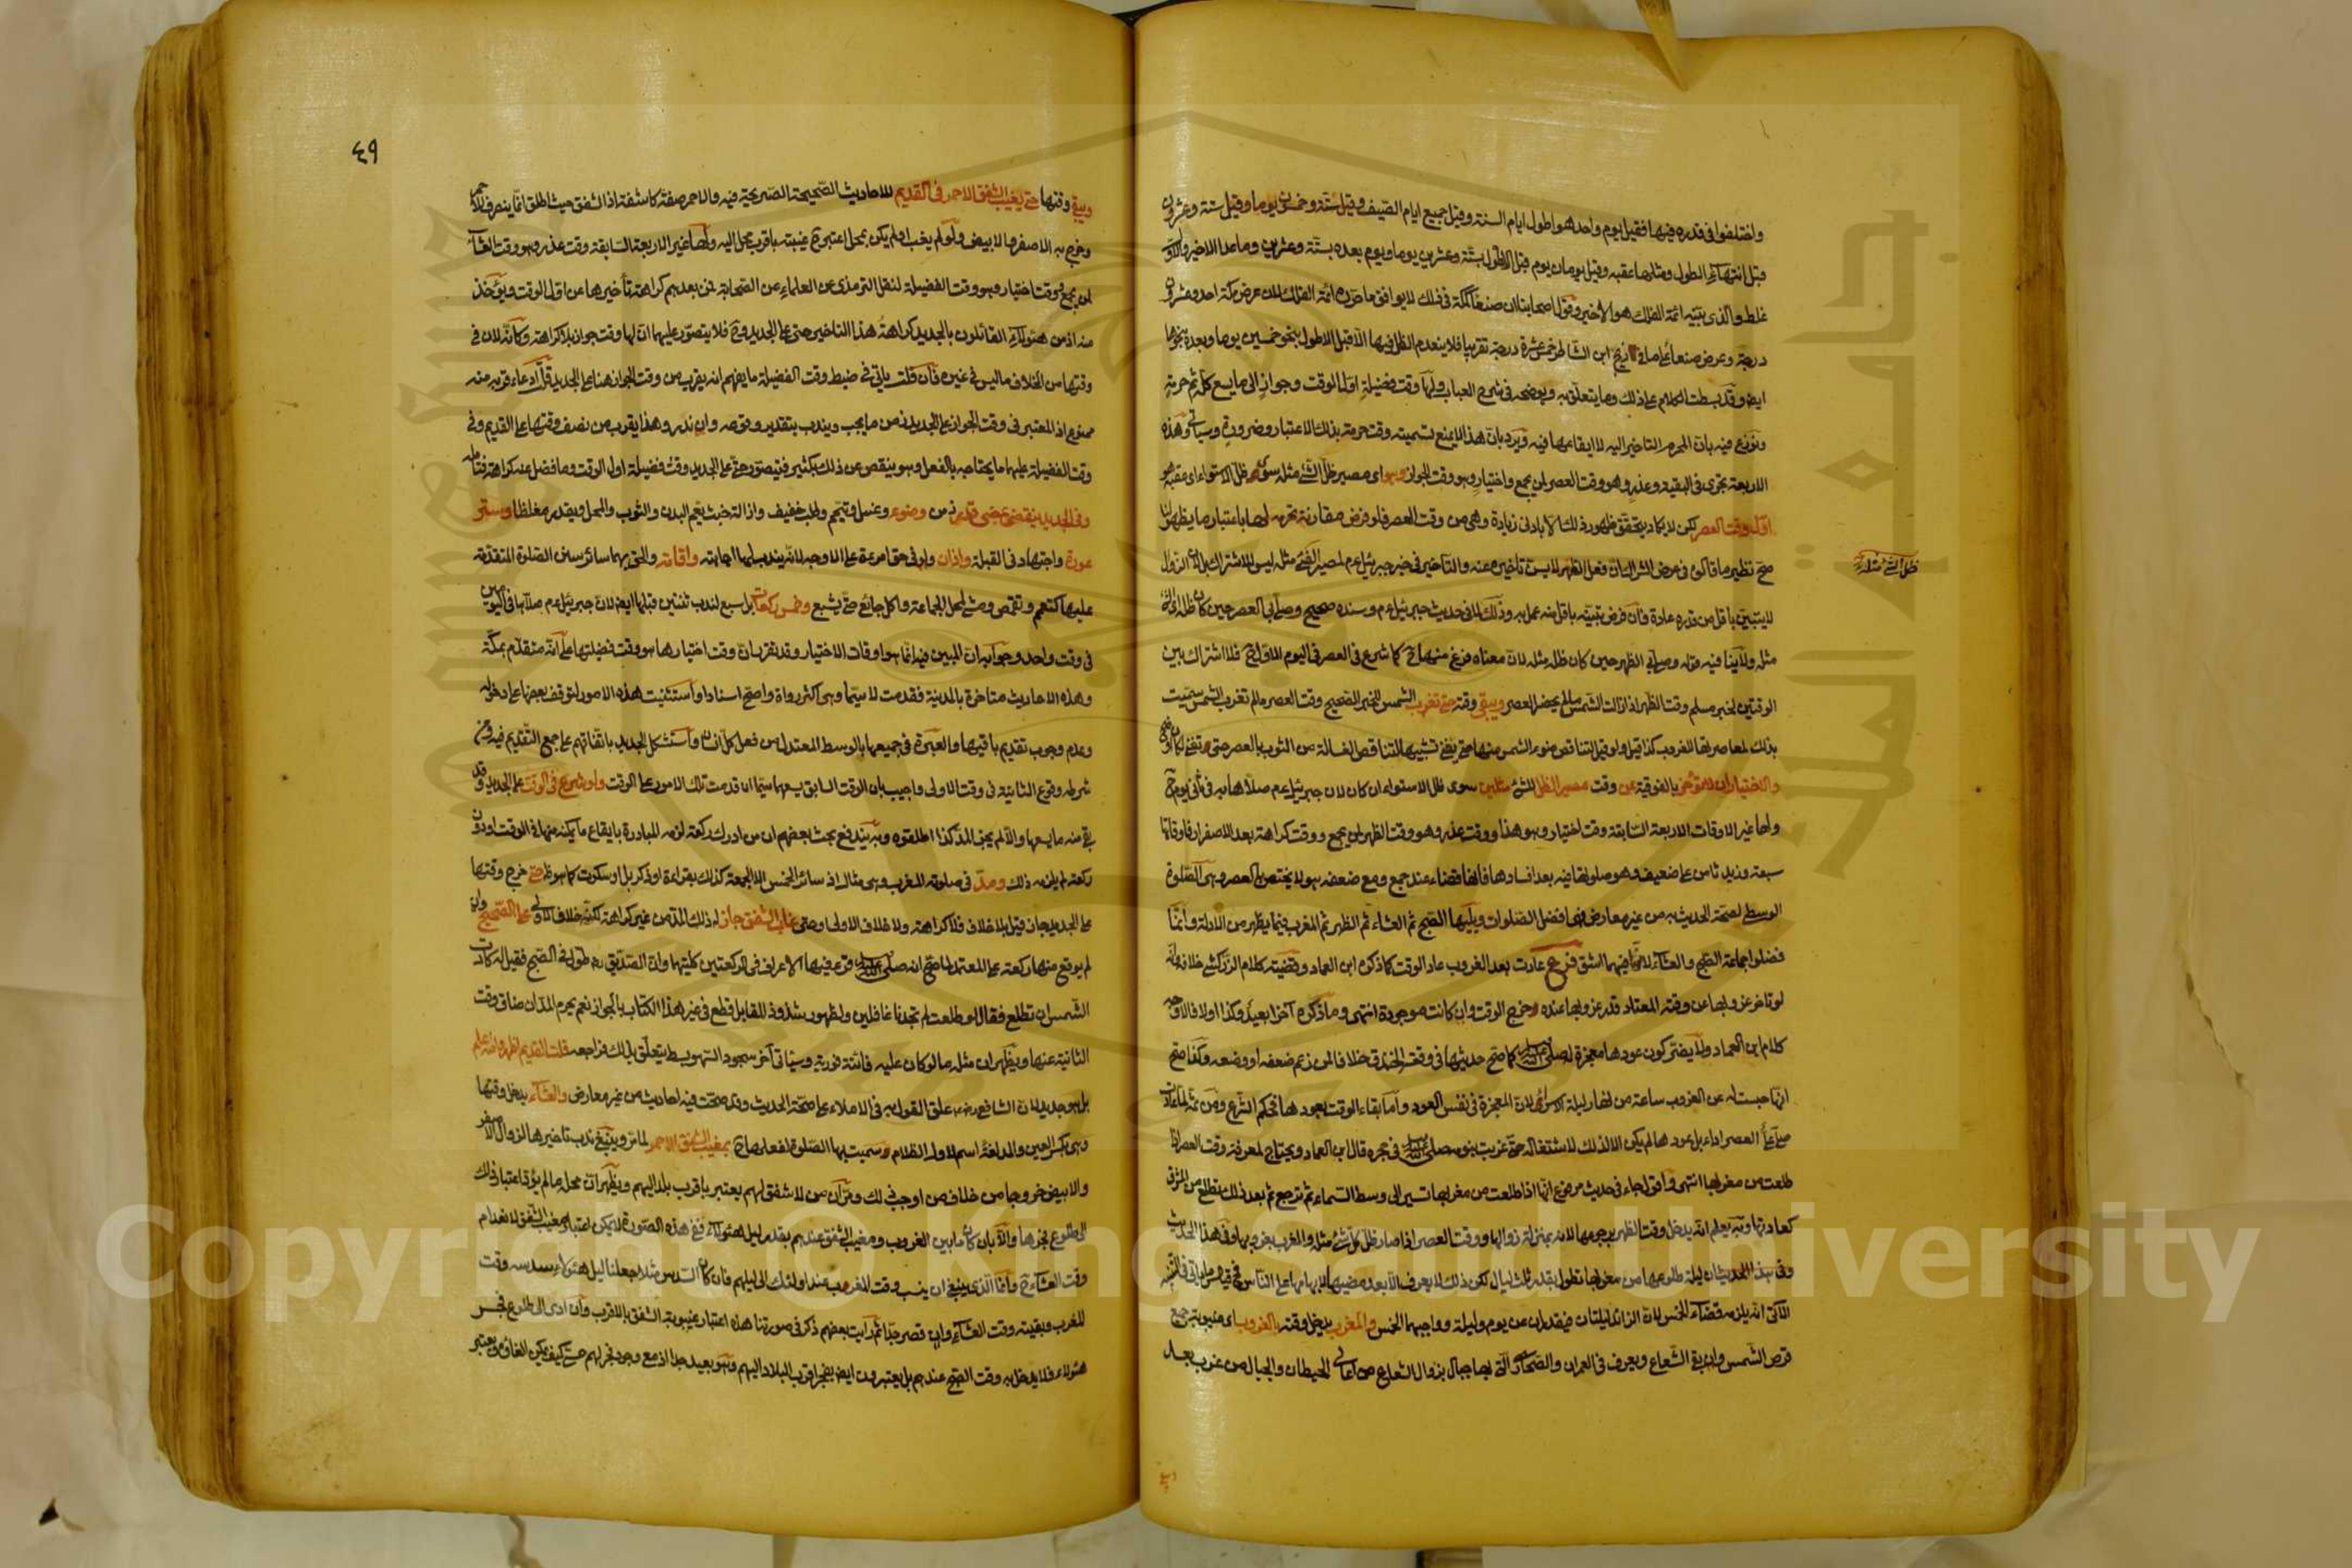 واختلفوا في قدره فيها فقيل يوم واحد هو اطول ايام السنة وقيل جميع ايام الصيف وقيل ستة وخمسون يوما وقيل ستة وعشرون
قبل انتهاء الطول ومثلها عقبه وقيل يومان يوم قبل الاطول بستة وعشرين يوما ويوم بعده بستة وعشرين وما عدا الاخير والاول
غلط والذي بينه ائمة الفلك هو الاخير وقول اصحابنا ان صنعاء كمكة في ذلك لا يوافق ما حرره ائمة الفلك لان عرض مكة احد وعشرون
درجة وعرض صنعاء على ما في زيج ابن الشاطر خمس عشرة درجة تقريبا فلا ينعدم الظل فيها الا قبل الاطول بنحو خمسين يوما وبعده بنحوها
ايض وقد بسطت الكلام على ذلك وما يتعلق به ويوضحه في شرح العباب ولها وقت فضيلة اول الوقت وجواز الى ما يسع كلها ثم حرمة
ونوزع فيه بان المحرم التاخير اليه لا ايقاعها فيه ويرد بان هذا لا يمنع تسميته وقت حرمة بذلك الاعتبار وضرورة وسياتي وهذه
الاربعة تجري في البقية وعذر وهو وقت العصر لمن يجمع واختيار وهو وقت الجواز وهو اى مصير ظل الشئ مثله سوى ظل الاستواء اى عقبه هو
اول وقت العصر لكن لا يكاد يتحقق ظهور ذلك الا بادنى زيادة وهي من وقت العصر فلو فرض مقارنة تحرمه لها باعتبار ما يظهر لنا
صح نظير ما قالوه في عرض فعل الظهر لا يسن تاخيره عنه والتاخير في خبر جبرئيل عم لمصير الفئ مثله ليس للاشتراك بل لان الزوال
ظل الشئ مثله
لا يتبين باقل من قدره عادة فان فرض تبينه باقل منه عمل به وذلك لما في حديث جبرئيل عم وسنده صحيح وصلى بي العصر حين كان ظله اى الشئ
مثله ولا ينافيه قوله وصلى بي الظهر حين كان ظله مثله لان معناه فرغ منها ح كما شرع في العصر في اليوم الاول ح فلا اشتراك بين
الوقتين لخبر مسلم وقت الظهر اذا زالت الشمس ما لم يحضر العصر ويبقى وقته حتى تغرب الشمس للخبر الصحيح وقت العصر ما لم تغرب الشمس سميت
بذلك لمعاصرتها للغروب كذا قيل ولو قيل لتناقص ضوء الشمس منها حتى يفنى تشبيها لتناقص الغسالة من الثوب بالعصر حتى تفنى لكان اوضح
والاختيار ان لا تؤخر بالفوقية عن وقت مصير الظل للشئ مثلين سوى ظل الاستواء ان كان لان جبرئيل عم صلاها به في ثاني يوم ح
ولها غير الاوقات الاربعة السابقة وقت اختيار وهو هذا ووقت عذر وهو وقت الظهر لمن يجمع ووقت كراهة بعد الاصفرار فاوقاتها
سبعة وزيد ثامن على ضعيف وهو صلوتها فيه بعد افسادها فانها قضاء عند جمع ومع ضعفه هو لا يختص بالعصر وهي الصلوة
الوسطى لصحة الحديث به من غير معارض فهي افضل الصلوات ويليها الصبح ثم العشاء ثم الظهر ثم المغرب فيما يظهر من الادلة وانما
فضلوا جماعة الصبح والعشاء لانها فيهما اشق فرع عادت بعد الغروب عاد الوقت كما ذكره ابن العماد وقضية كلام الزركشي خلافه وانه
لو تاخر غروبها عن وقته المعتاد قدر غروبها عنده وخرج الوقت وان كانت موجودة انتهى وما ذكره آخرا بعيد وكذا اولا فالاوجه
كلام ابن العماد ولا يضر كون عودها معجزة له صلى الله عليه كما صح حديثها في وقعة الخندق خلافا لمن زعم ضعفه او وضعه وكذا صح
انها حبست له عن الغروب ساعة من نهار ليلة الاسراء لان المعجزة في نفس العود واما بقاء الوقت بعودها فبحكم الشرع ومن ثم لما عادت
صلى علي العصر اداء بل عودها لم يكن الا لذلك لاشتغاله حتى غربت بنومه صلى الله عليه في حجره قال ابن العماد ويحتاج لمعرفة وقت العصر اذا
طلعت من مغربها انتهى واقول جاء في حديث مرفوع انها اذا طلعت من مغربها تسير الى وسط السماء ثم ترجع ثم بعد ذلك تطلع من المشرق
كعادتها وبه يعلم انه يدخل وقت الظهر برجوعها لانه بمنزلة زوالها ووقت العصر اذا صار ظل كل شئ مثله والمغرب بغروبها وفي هذا الحديث
وفي هذا الحديث ان ليلة طلوعها من مغربها تطول بقدر ثلث ليال لكن ذلك لا يعرف الا بعد مضيها لابهامها على الناس فح قياس ما ياتي
الآتي انه يلزمه قضاء الخمس لان الزائد ليلتان فيقدران عن يوم وليلة وواجبهما الخمس والمغرب يدخل وقته بالغروب اى غيبوبة جميع
قرص الشمس وان بقي الشعاع ويعرف في العمران والصحارى التي بها جبال بزوال الشعاع من اعالى الحيطان والجبال من غرب بعد
٤٩
ويبقى وقتها حتى يغيب الشفق الاحمر في القديم للاحاديث الصحيحة الصريحة فيه والاحمر صفة كاشفة اذ الشفق حيث اطلق انما ينصرف للاحمر
وخرج به الاصفر والابيض ولو لم يغب او لم يكن بمحل اعتبر ح غيبته باقرب محل اليه ولها غير الاربعة السابقة وقت عذر وهو وقت العشاء
لمن يجمع ووقت اختيار وهو وقت الفضيلة لنقل الترمذي عن العلماء من الصحابة فمن بعدهم كراهة تأخيرها عن اول الوقت ويؤخذ
منه اذ من هئولاء القائلون بالجديد كراهة هذا التاخير حتى على الجديد وح فلا يتصور عليهما ان لها وقت جواز بلا كراهة وكأنه لان في
وقتها من الخلاف ما ليس في غيره فان قلت ياتي في ضبط وقت الفضيلة ما يفهم انه يقرب من وقت الجواز هنا على الجديد قلت ادعاء قربه منه
ممنوع اذ المعتبر في وقت الجواز على الجديد زمن ما يجب ويندب بتقدير وقوعه وان ندر وهذا يقرب من نصف وقتها على القديم وفي
وقت الفضيلة عليهما ما يحتاج به بالفعل وهو ينقص عن ذلك بكثير فيتصور حتى على الجديد وقت فضيلة اول الوقت وما فضل عنه كراهة فتامله
وفي الجديد ينقضي بمضي قدر زمن وضوء وغسل وتيمم وطلب خفيف وازالة خبث يعم البدن والثوب والمحل ويقدر مغلظا وستر
عورة واجتهاد في القبلة واذان ولو في حق امرءة على الاوجه لانه يندب لها اجابته واقامة والحق بهما سائر سنن الصلوة المتقدمة
عليها كتعمم وتقمص ومشي لمحل الجماعة واكل جائع حتى يشبع وخمس ركعات بل سبع لندب ثنتين قبلها ايض لان جبرئيل عم صلاها في اليومين
في وقت واحد وجوابه ان المبين فيه انما هو اوقات الاختيار وقد تقرر ان وقت اختيارها هو وقت فضيلتها على انه متقدم بمكة
وهذه الاحاديث متاخرة بالمدينة فقدمت لا سيما وهي اكثر رواة واصح اسنادا واستثنيت هذه الامور لتوقف بعضها على دخوله
وعدم وجوب تقديم باقيها والعبرة في جميعها بالوسط المعتدل من فعل كل انسان واستشكل الجديد باتفاقهم على جمع التقديم فيه ومن
شرطه وقوع الثانية في وقت الاولى واجيب بان الوقت السابق يسعهما سيما ان قدمت تلك الامور على الوقت ولو شرع في الوقت على الجديد وقد
بقي منه ما يسعها والا لم يجز المد كذا اطلقوه وبه يندفع بحث بعضهم ان من ادرك ركعة لزمه المبادرة بايقاع ما يمكنه منها في الوقت او دون
ركعة لم يلزمه ذلك ومد في صلوته المغرب وهي مثال اذ سائر الخمس الا الجمعة كذلك بقراءة او ذكر بل او سكوت كما هو ظ حتى خرج وقتها
على الجديد جاز قيل بلا خلاف فلا كراهة ولا خلاف الاولى وحتى غاب الشفق جاز له ذلك المد من غير كراهة لكنه خلاف الاولى على الصحيح وان
لم يوقع منها ركعة على المعتمد لما صح انه صلى الله عليه قرء فيها الاعراف في الركعتين كليهما وان الصديق رض طول في الصبح فقيل له كادت
الشمس ان تطلع فقال لو طلعت لم تجدنا غافلين ولظهور شذوذ المقابل قطع في غير هذا الكتاب بالجواز نعم يحرم المد ان ضاق وقت
الثانية عنها ويظهر ان مثله ما لو كان عليه فائتة فورية وسياتي آخر سجود السهو بسط يتعلق بذلك فراجعه قلت القديم اظهر والله اعلم
بل هو جديد لان الشافعي رض علق القول به في الاملاء على صحة الحديث وقد صحت فيه احاديث من غير معارض والعشاء يدخل وقتها
وهي بكسر العين والمد لغة اسم لاول الظلام وسميت بها الصلوة لفعلها ح بمغيب الشفق الاحمر لما مر وينبغي ندب تاخيرها لزوال الاصفر
والابيض خروجا من خلاف من اوجب ذلك ومر ان من لا شفق لهم يعتبر باقرب بلد اليهم ويظهر ان محله ما لم يؤد اعتبار ذلك
الى طلوع فجرها والا بان كان ما بين الغروب ومغيب الشفق عندهم بقدر ليل هئولاء ففي هذه الصورة لا يمكن اعتبار مغيب الشفق لانعدام
وقت العشاء ح وانما الذي ينبغي ان ينسب وقت المغرب عند اولئك الى ليلهم فان كان السدس مثلا جعلنا ليل هئولاء سدسه وقت
المغرب وبقيته وقت العشاء وان قصر جدا ثم رايت بعضهم ذكر في صورتنا هذه اعتبار غيبوبة الشفق بالاقرب وان ادى الى طلوع فجر
هئولاء فلا يدخل به وقت الصبح عندهم بل يعتبرون ايض بفجر اقرب البلاد اليهم وهو بعيد جدا اذ مع وجود فجر لهم حسي كيف يمكن الغاؤه ويعتبر
Copyright © King Saud University